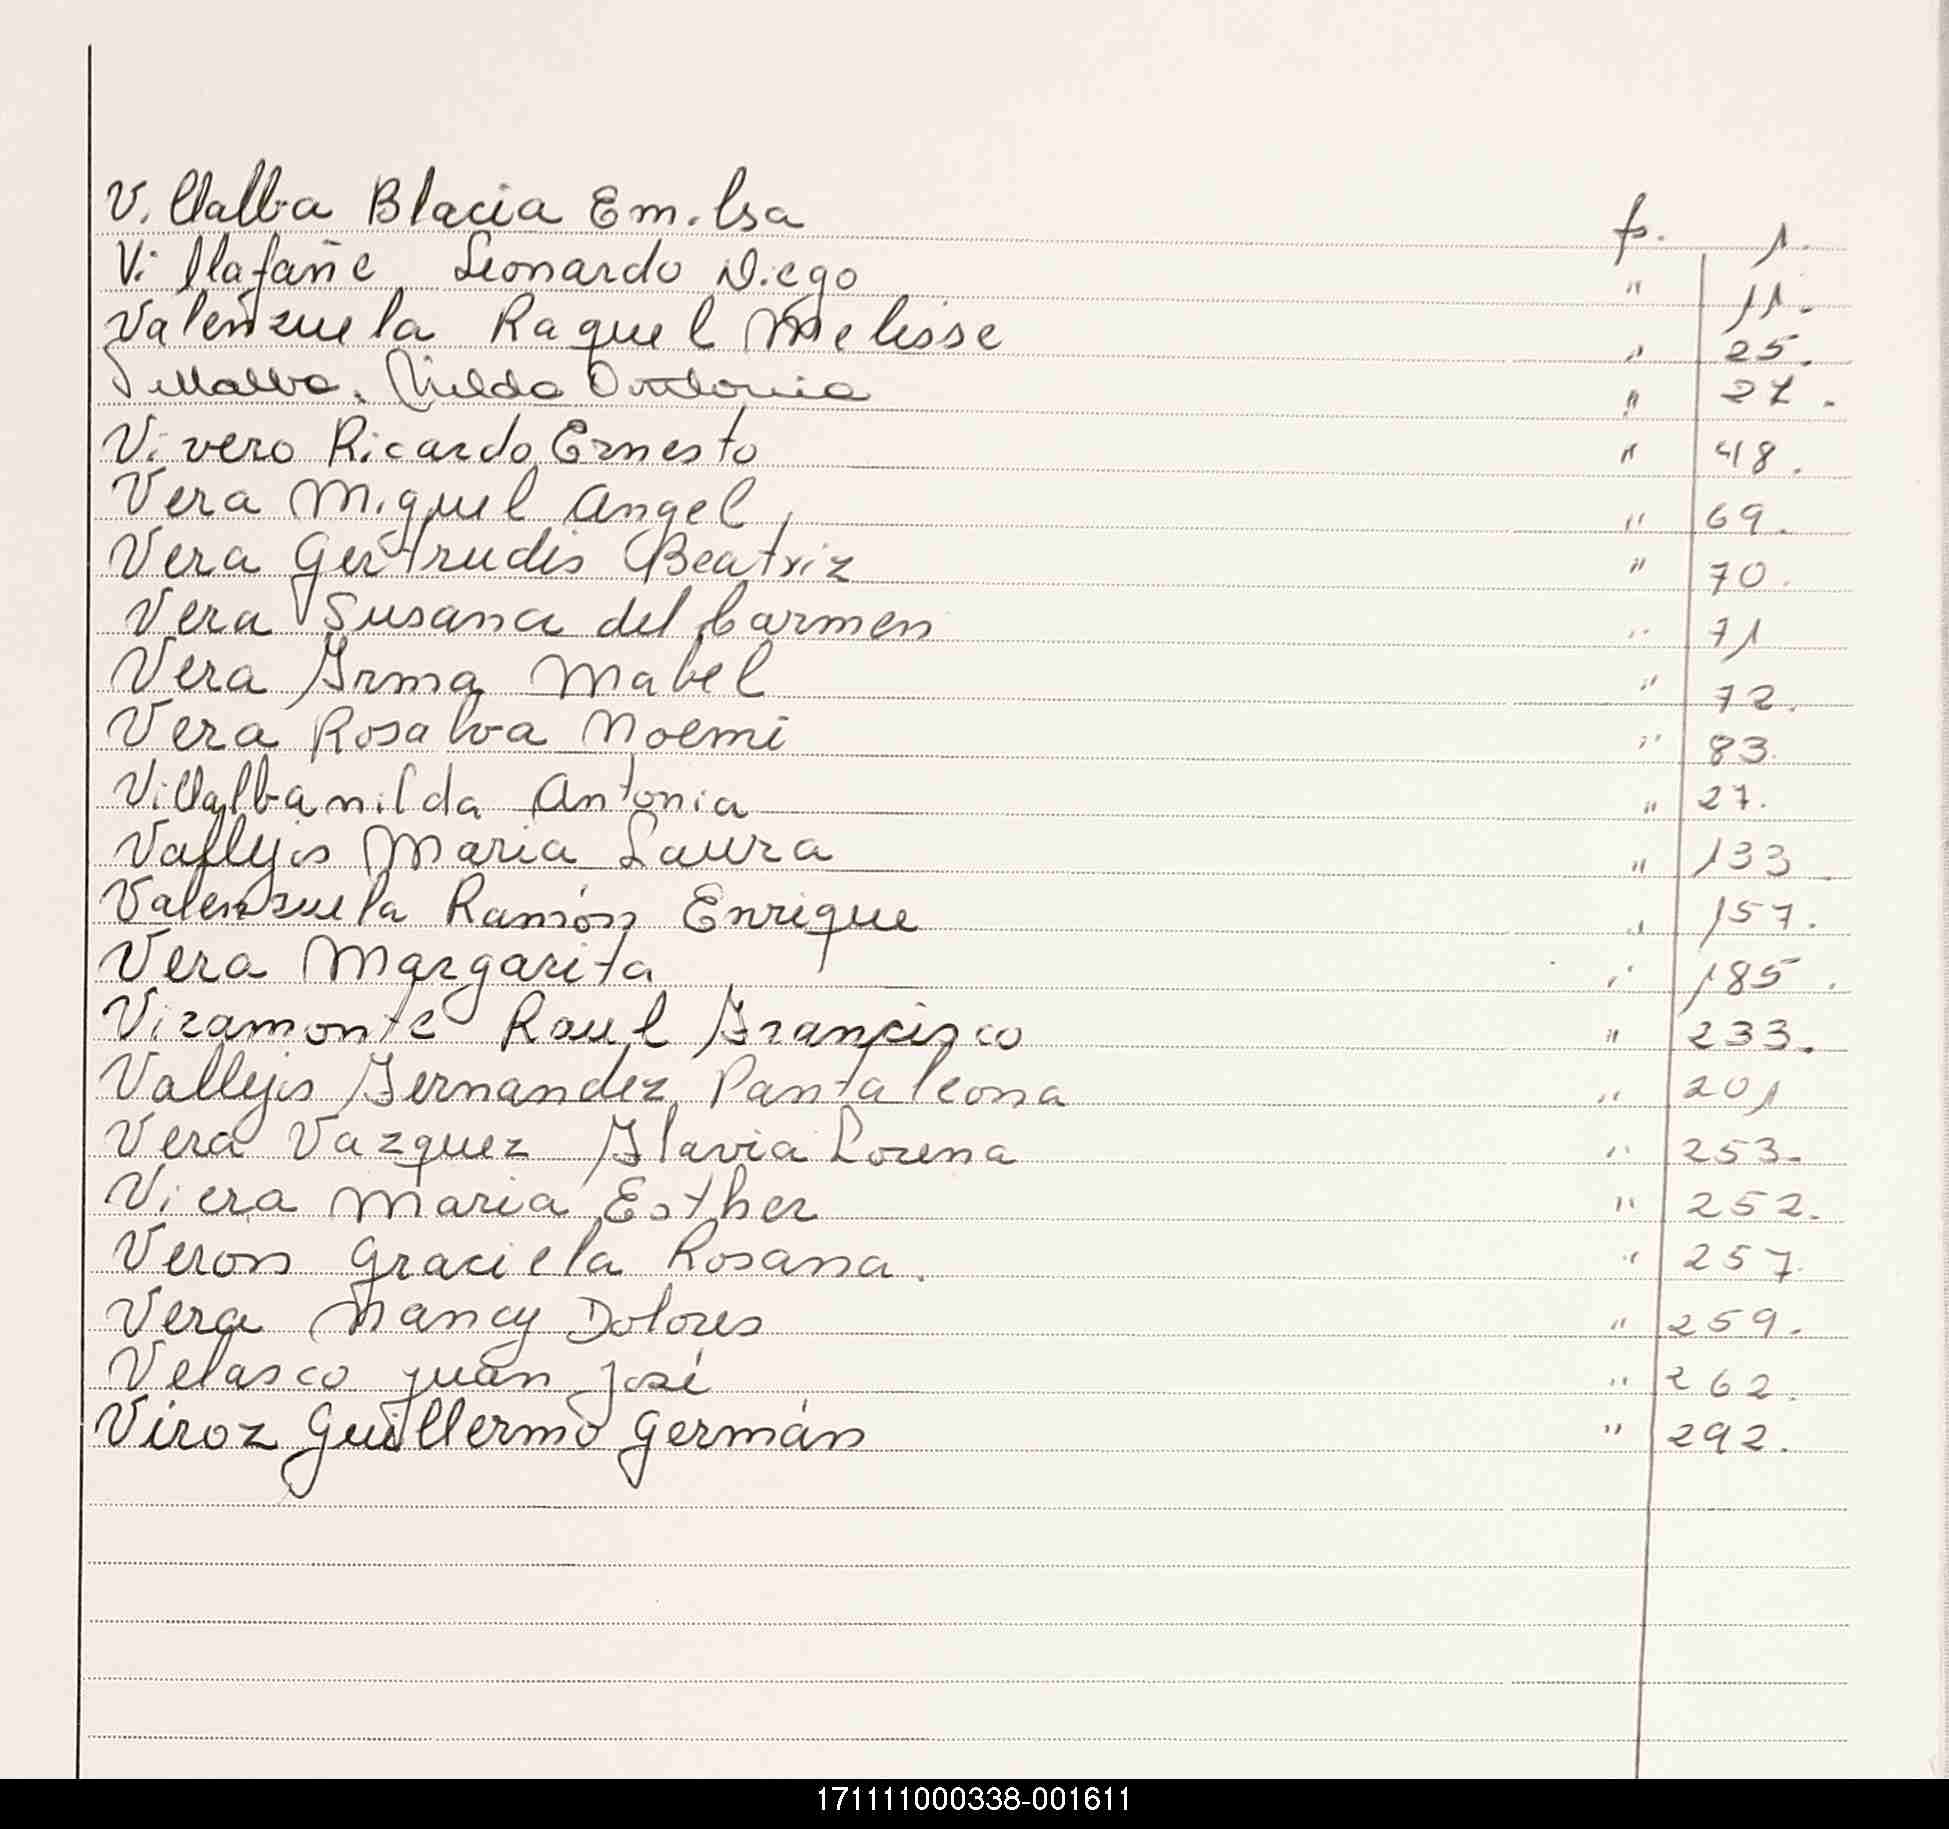 Villalba Blacia Emilsa f. 1.
Villafañe Leonardo Diego " 11.
Valenzuela Raquel Melisse " 25.
Villalba, Nilda Antonia " 27.
Vivero Ricardo Ernesto " 48.
Vera Miguel Angel " 69.
Vera Gertrudis Beatriz " 70.
Vera Susana del Carmen " 71
Vera Irma Mabel " 72.
Vera Rosalva Noemi " 83.
Villalba Nilda Antonia " 27.
Vallejos Maria Laura " 133
Valenzuela Ramón Enrique " 157.
Vera Margarita " 185.
Viramonte Raul Francisco " 233.
Vallejos Fernandez Pantaleona " 201
Vera Vazquez Flavia Lorena " 253.
Viera Maria Esther " 252.
Veron Graciela Rosana. " 257.
Vera Nancy Dolores " 259.
Velasco Juan José " 262.
Viroz Guillermo Germán " 292.
171111000338-001611